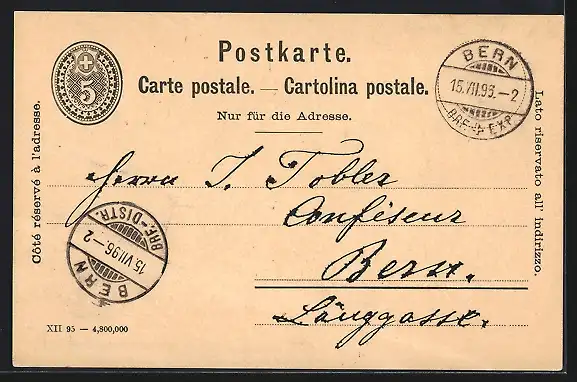 Postkarte.
Carte postale. — Cartolina postale.
Nur für die Adresse.
5
BERN
15.VII.96.–2
BRF. EXP.
Côté réservé à l'adresse.
Lato riservato all' indirizzo.
Herrn J. Tobler
Confiseur
Bern.
Länggasse.
BRF.-DISTR.
15.VII.96.–2
BERN
XII 95 — 4,800,000